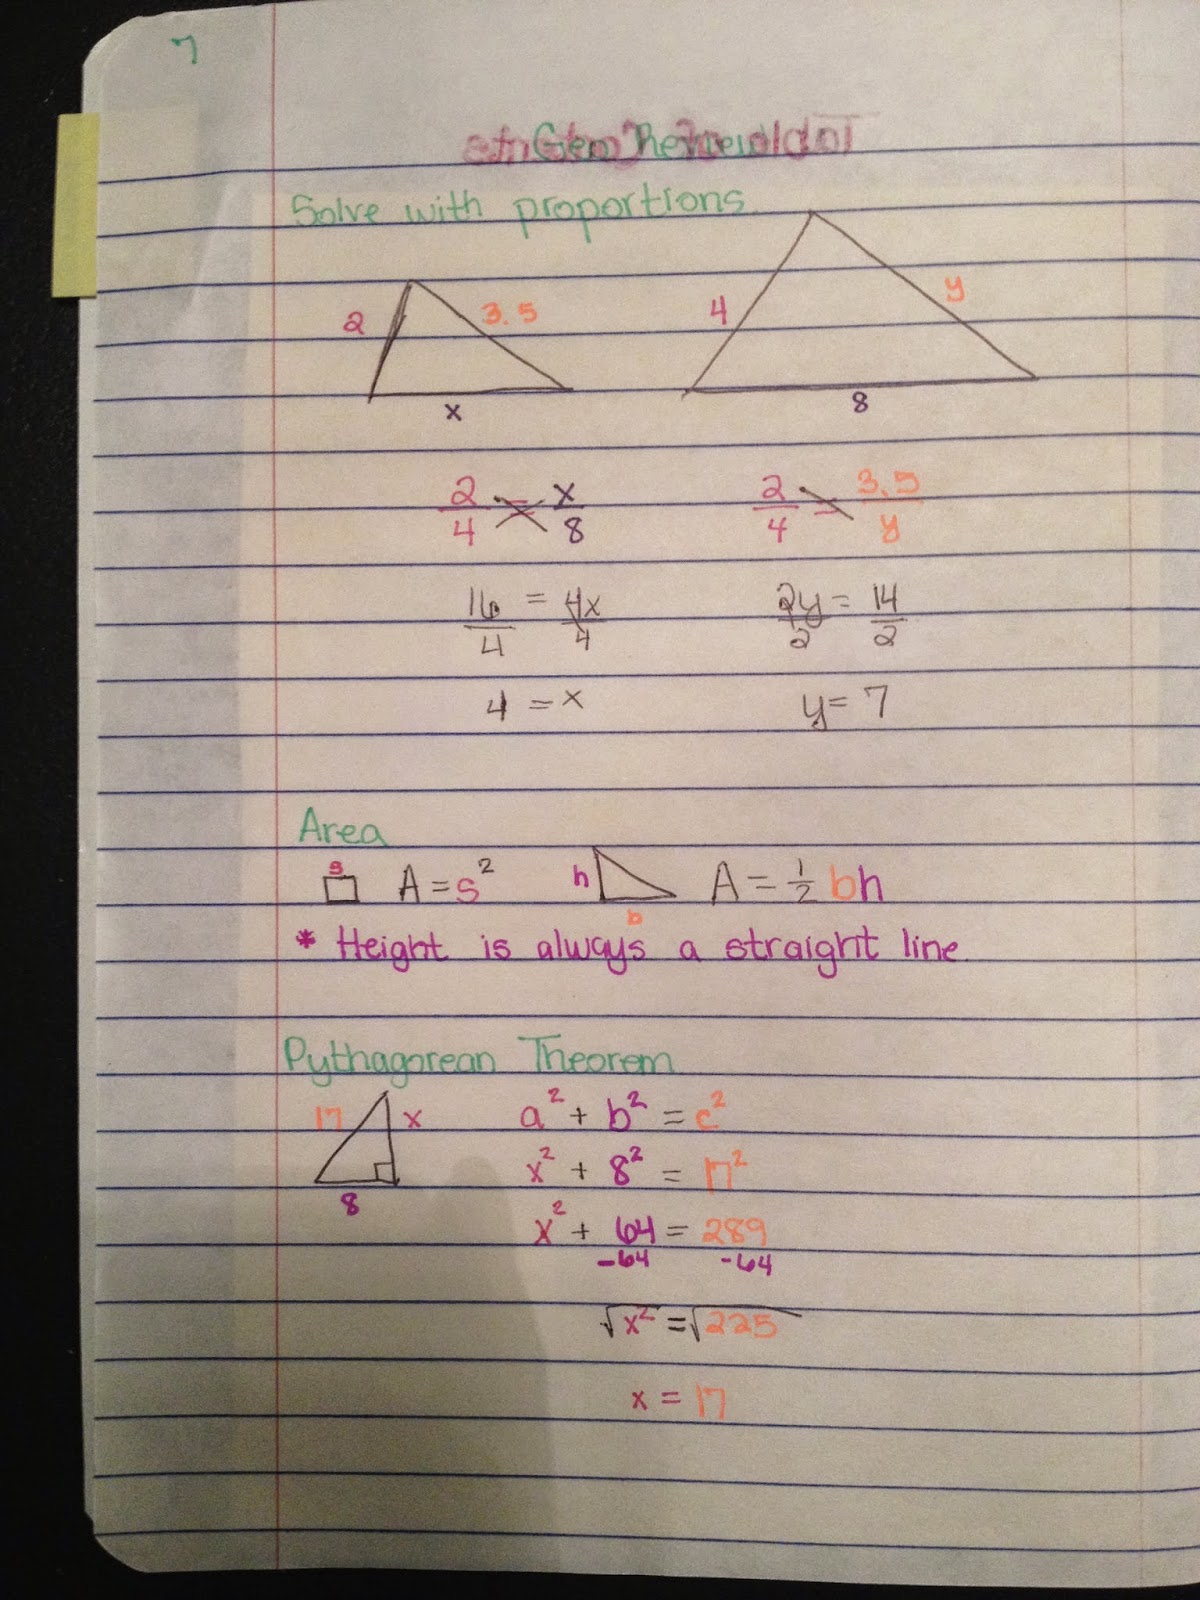 7
Solve with proportions
2 3.5 x
4 y 8
2/4 = x/8 2/4 = 3.5/y
16/4 = 4x/4 2y/2 = 14/2
4 = x y = 7
Area
s A = s² h b A = ½ bh
* Height is always a straight line.
Pythagorean Theorem
17 x 8
a² + b² = c²
x² + 8² = 17²
x² + 64 = 289
-64 -64
√x² = √225
x = 17